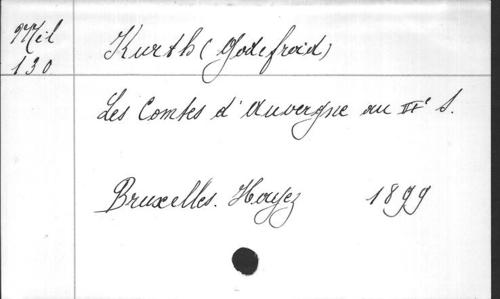 Mél
130
Kurth (Godefroid)
Les Comtes d'Auvergne au IIe S.
Bruxelles. Hayez 1899